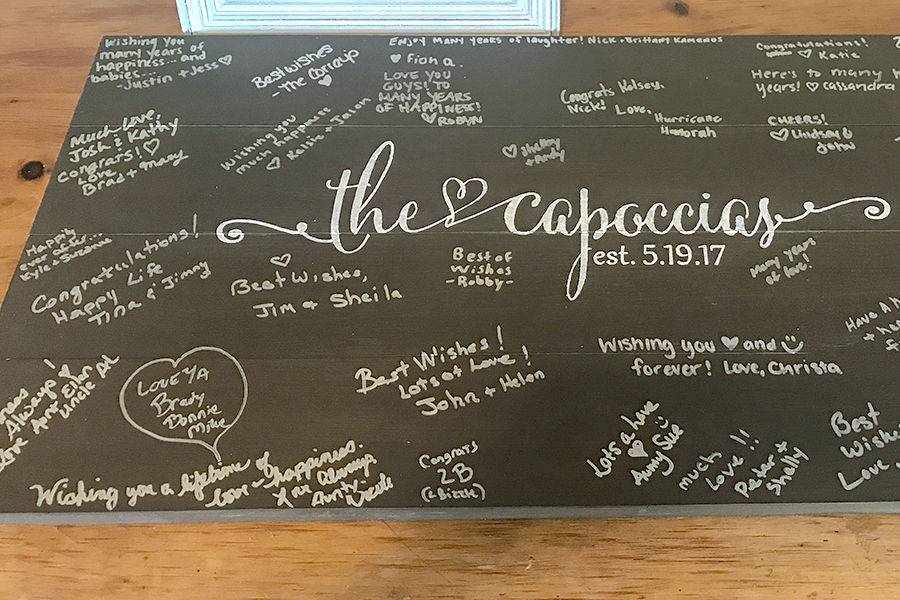 Wishing you
many years of
happiness... and
babies...
-Justin + Jess
Best Wishes
-The Corrayo
ENJOY MANY YEARS OF LAUGHTER! NICK + BRITTANY KAMENOS
Fiona
LOVE YOU
GUYS! TO
MANY YEARS
OF HAPPINESS!
ROBYN
Congratulations!
Katie
Here's to many
years! Cassandra
Congrats Kelsey,
Nick! Love,
Hurricane
Hannorah
CHEERS!
Lindsey &
John
Much Love,
Josh & Kathy
Congrats!
Love
Brad + Mary
Wishing you
much happiness
Kelsie + Talon
Shelby
+ Andy
the capoccias
est. 5.19.17
Happily
ever after...
Kyle + Suzanne
Congratulations!
Happy Life
Tina & Jimmy
Best Wishes,
Jim & Sheila
Best of
Wishes
-Robby-
Many years
of love!
Have A
Wishing you and
forever! Love, Christa
Best Wishes!
Lots of Love!
John + Helen
Always!
Love Aunt
Uncle
LOVE YA
Brady
Donnie
Mike
Wishing you a lifetime of
love + happiness.
Always
Congrats
2B
(2 Bizzle)
Lots a love
Aunty Sue
much
Love!!
Peter +
Shelly
Best
Wishes
Love